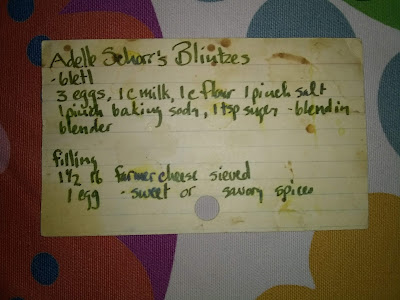 Adelle Schorr's Blintzes
- bletl
3 eggs, 1 c milk, 1 c flour 1 pinch salt
1 pinch baking soda, 1 tsp sugar - blend in
blender
filling
1 1/2 lb farmer cheese sieved
1 egg - sweet or savory spices